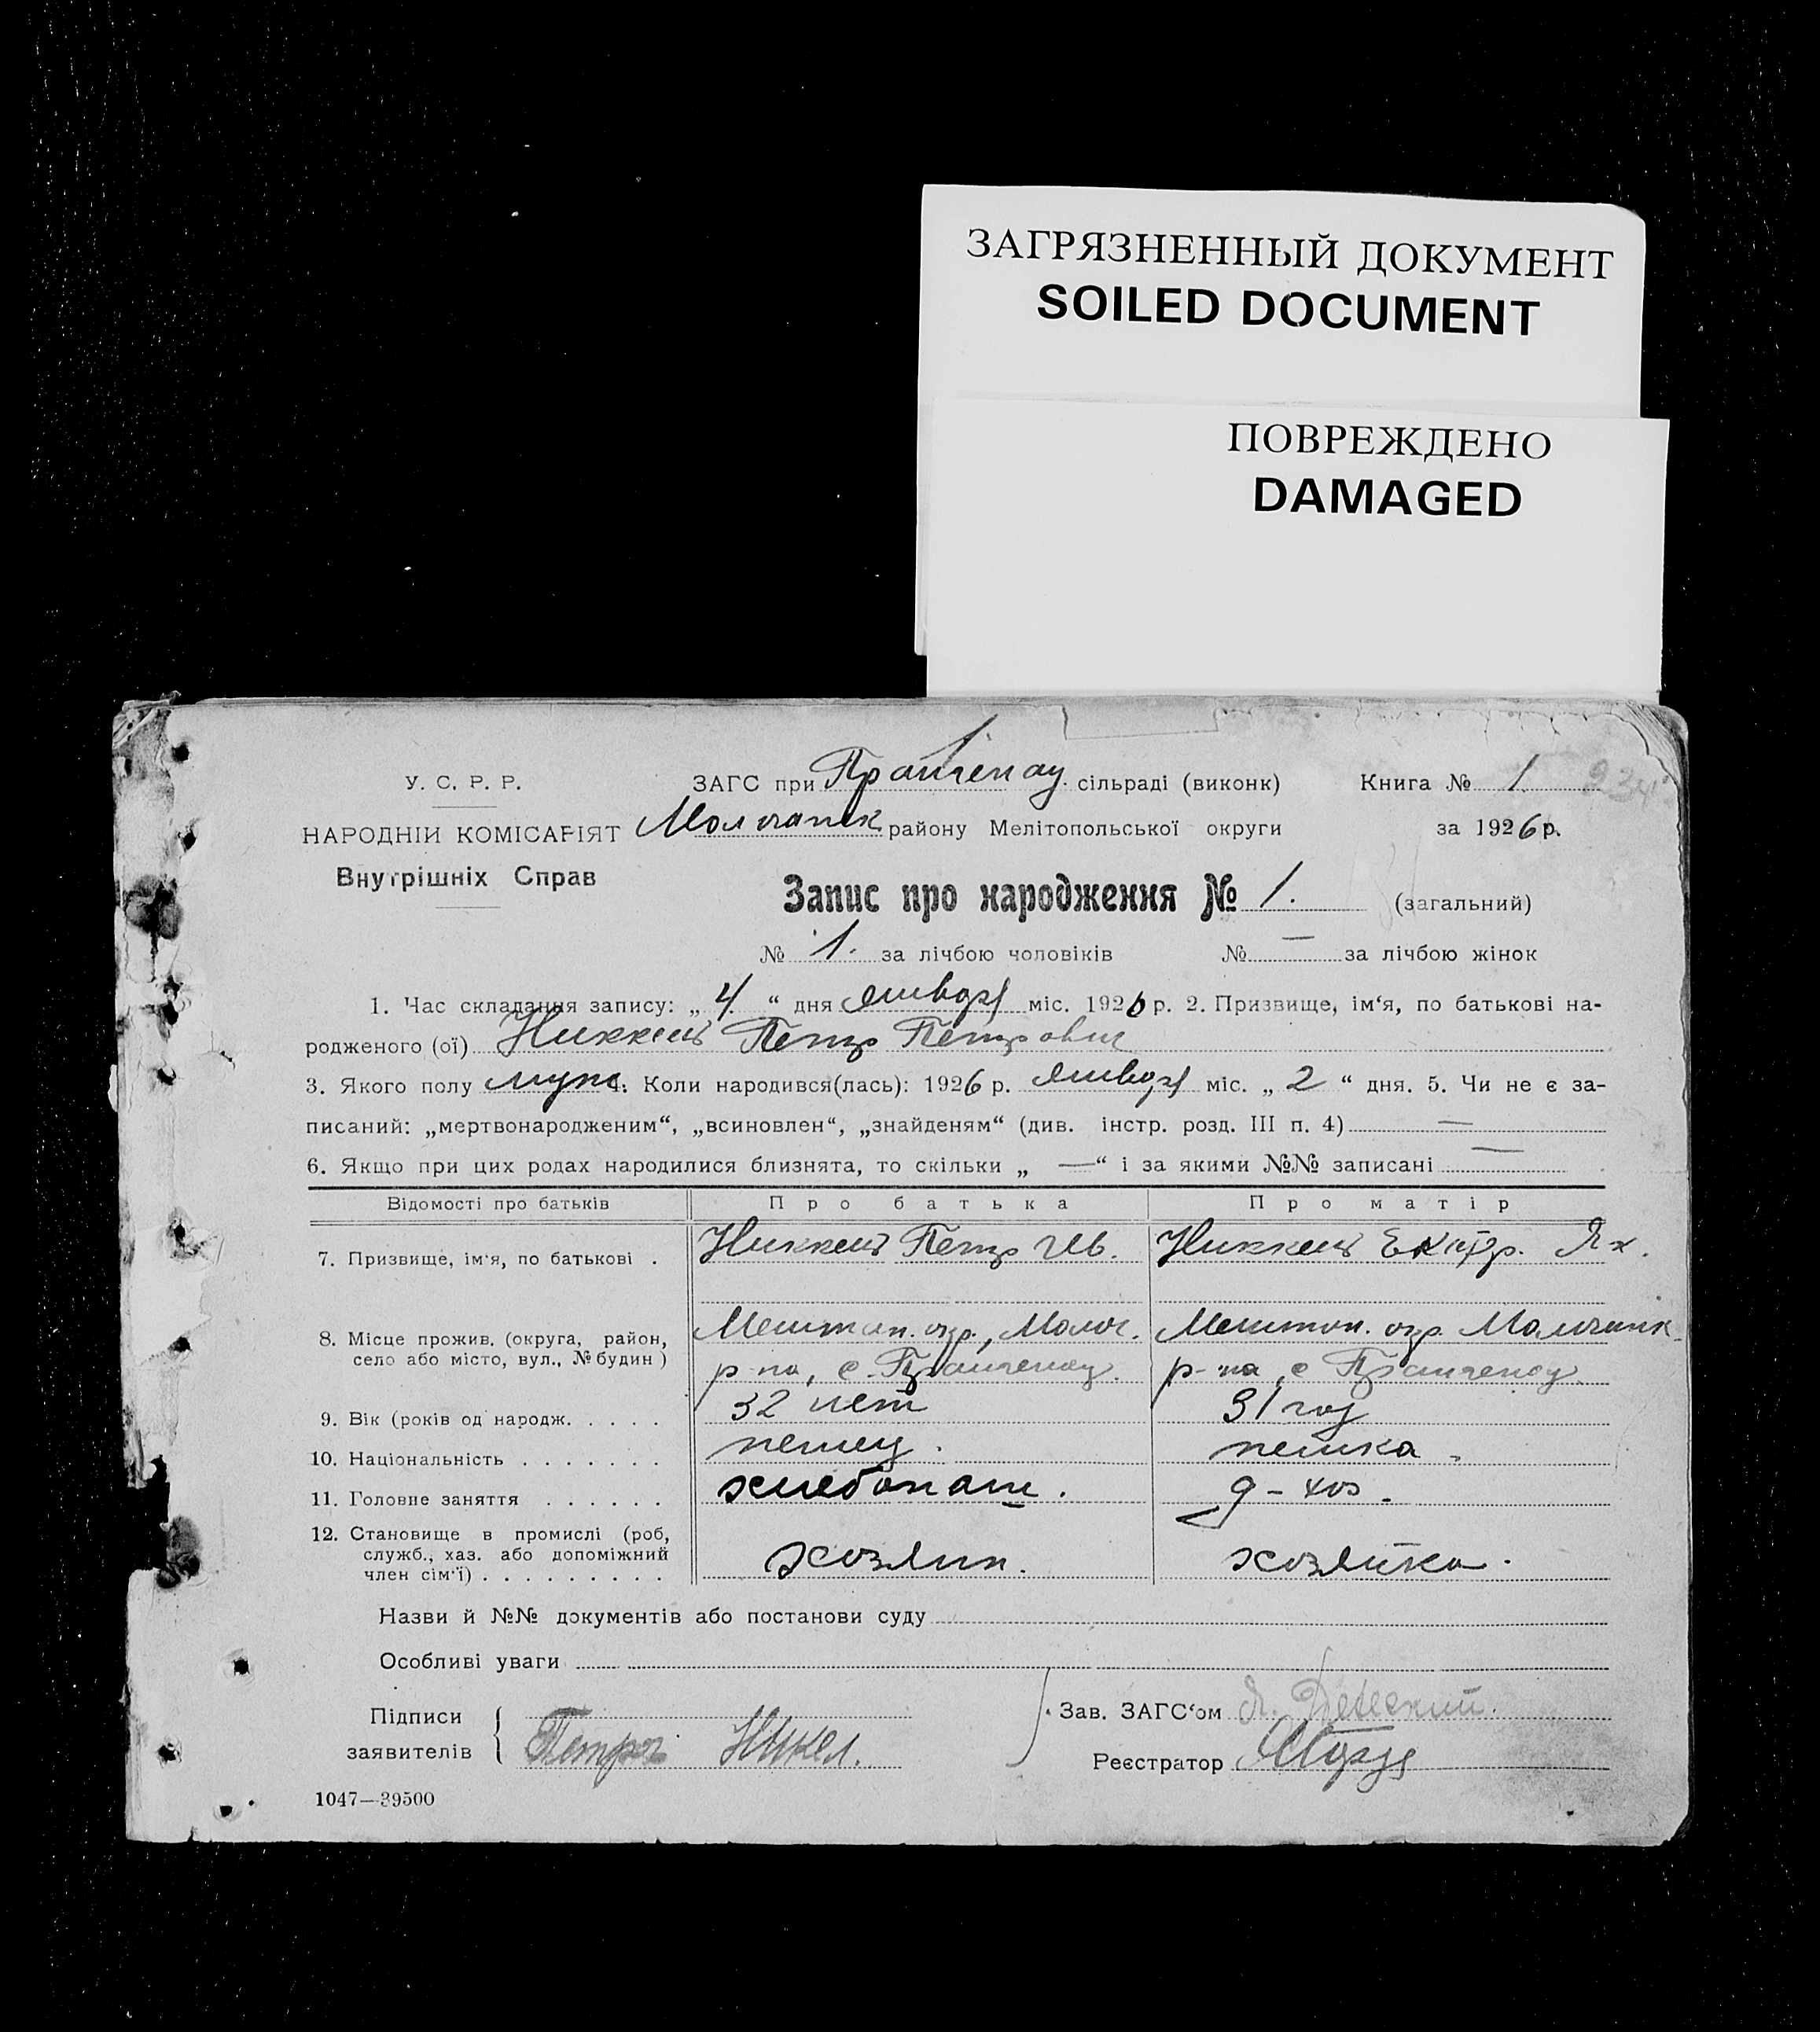 ЗАГРЯЗНЕННЫЙ ДОКУМЕНТ
SOILED DOCUMENT
ПОВРЕЖДЕНО
DAMAGED
У. С. Р. Р. ЗАГС при Прангенау сільраді (виконк) Книга № 1
НАРОДНІЙ КОМІСАРІЯТ Молочанск району Мелітопольської округи за 1926 р.
Внутрішніх Справ
Запис про народження № 1. (загальний)
№ 1. за лічбою чоловіків № — за лічбою жінок
1. Час складання запису: „ 4 “ дня января міс. 1926 р. 2. Призвище, ім‘я, по батькові на-
родженого (ої) Никкель Петр Петрович
3. Якого полу муж. 4. Коли народився(лась): 1926 р. января міс. „ 2 “ дня. 5. Чи не є за-
писаний: „мертвонародженим“, „всиновлен“, „знайденям“ (див. інстр. розд. III п. 4) —
6. Якщо при цих родах народилися близнята, то скільки „ — “ і за якими №№ записані —
Відомості про батьків Про батька Про матір
7. Призвище, ім‘я, по батькові . Никкель Петр Ив. Никкель Екатр. Як.
8. Місце прожив. (округа, район, Мелитоп. окр., Молоч. Мелитоп. окр. Молочанск.
село або місто, вул., № будин ) р-на, с. Прангенау. р-на, с Прангенау.
9. Вік (років од народж. . . . . 32 лет 31 год
10. Національність . . . . . . . немец. немка.
11. Головне заняття . . . . . . хлебопаш. д-хоз.
12. Становище в промислі (роб,
служб., хаз. або допоміжний хозяин. хозяйка.
член сім‘ї) . . . . . . . . .
Назви й №№ документів або постанови суду
Особливі уваги
Підписи Зав. ЗАГС‘ом
заявителів Петр Никел. Реєстратор
1047—39500